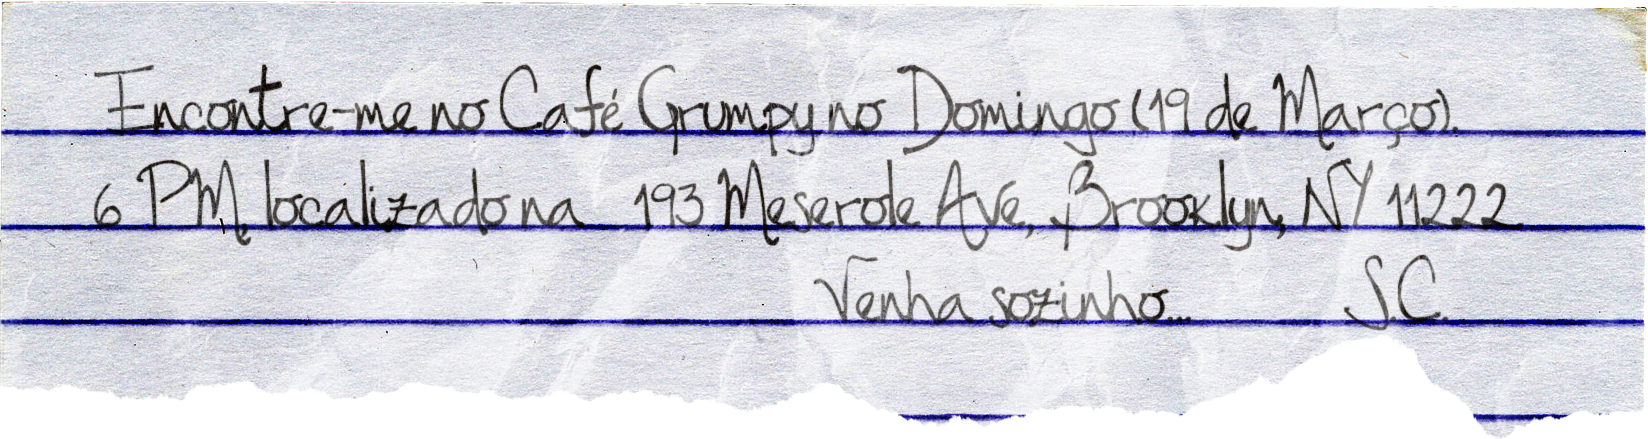 Encontre-me no Café Grumpy no Domingo (19 de Março).
6 PM, localizado na 193 Meserole Ave, Brooklyn, NY 11222
Venha sozinho... S.C.